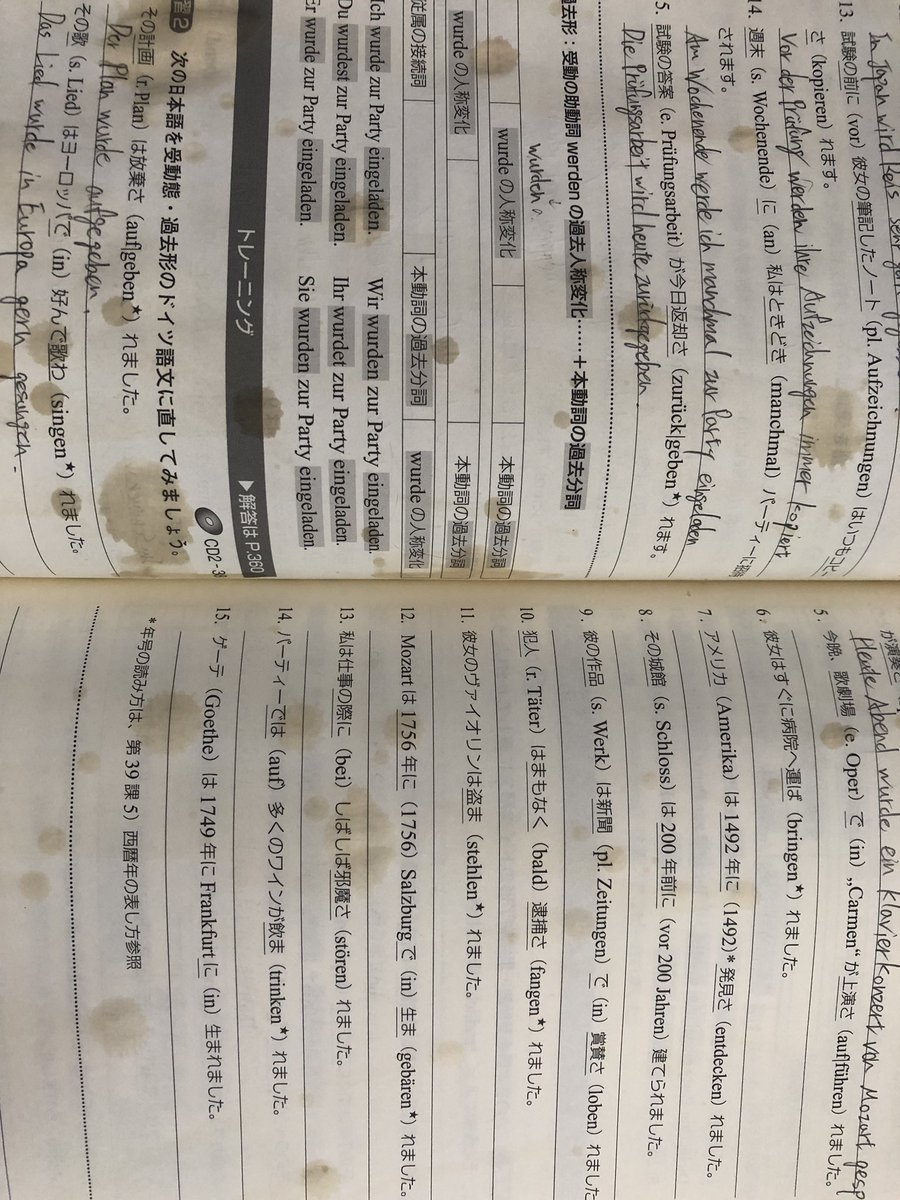 In Japan wird Reis sehr
13. 試験の前に (vor) 彼女の筆記したノート (pl. Aufzeichnungen) はいつもコピ
さ (kopieren) れます。
Vor der Prüfung werden ihre Aufzeichnungen immer kopiert
14. 週末 (s. Wochenende) に (an) 私はときどき (manchmal) パーティーに招待
されます。
Am Wochenende werde ich manchmal zur Party eingeladen
5. 試験の答案 (e. Prüfungsarbeit) が今日返却さ (zurück|geben*) れます。
Die Prüfungsarbeit wird heute zurückgegeben.
過去形：受動の助動詞 werden の過去人称変化……＋本動詞の過去分詞
wurden
wurde の人称変化 本動詞の過去分詞
wurde の人称変化 本動詞の過去分詞
従属の接続詞 本動詞の過去分詞 wurde の人称変化
Ich wurde zur Party eingeladen. Wir wurden zur Party eingeladen.
Du wurdest zur Party eingeladen. Ihr wurdet zur Party eingeladen.
Er wurde zur Party eingeladen. Sie wurden zur Party eingeladen.
トレーニング ▶解答は P.360
習② 次の日本語を受動態・過去形のドイツ語文に直してみましょう。 CD2-3
その計画 (r. Plan) は放棄さ (auf|geben*) れました。
Der Plan wurde aufgegeben.
その歌 (s. Lied) はヨーロッパで (in) 好んで歌わ (singen*) れました。
Das Lied wurde in Europa gern gesungen.
が演奏さ
Heute Abend wurde ein Klavierkonzert von Mozart gesp
5. 今晩、歌劇場 (e. Oper) で (in) „Carmen“ が上演さ (auf|führen) れました。
6. 彼女はすぐに病院へ運ば (bringen*) れました。
7. アメリカ (Amerika) は 1492 年に (1492)* 発見さ (entdecken) れました。
8. その城館 (s. Schloss) は 200 年前に (vor 200 Jahren) 建てられました。
9. 彼の作品 (s. Werk) は新聞 (pl. Zeitungen) で (in) 賞賛さ (loben) れました
10. 犯人 (r. Täter) はまもなく (bald) 逮捕さ (fangen*) れました。
11. 彼女のヴァイオリンは盗ま (stehlen*) れました。
12. Mozart は 1756 年に (1756) Salzburg で (in) 生ま (gebären*) れました。
13. 私は仕事の際に (bei) しばしば邪魔さ (stören) れました。
14. パーティーでは (auf) 多くのワインが飲ま (trinken*) れました。
15. ゲーテ (Goethe) は 1749 年に Frankfurt に (in) 生まれました。
*年号の読み方は、第 39 課 5) 西暦年の表し方参照